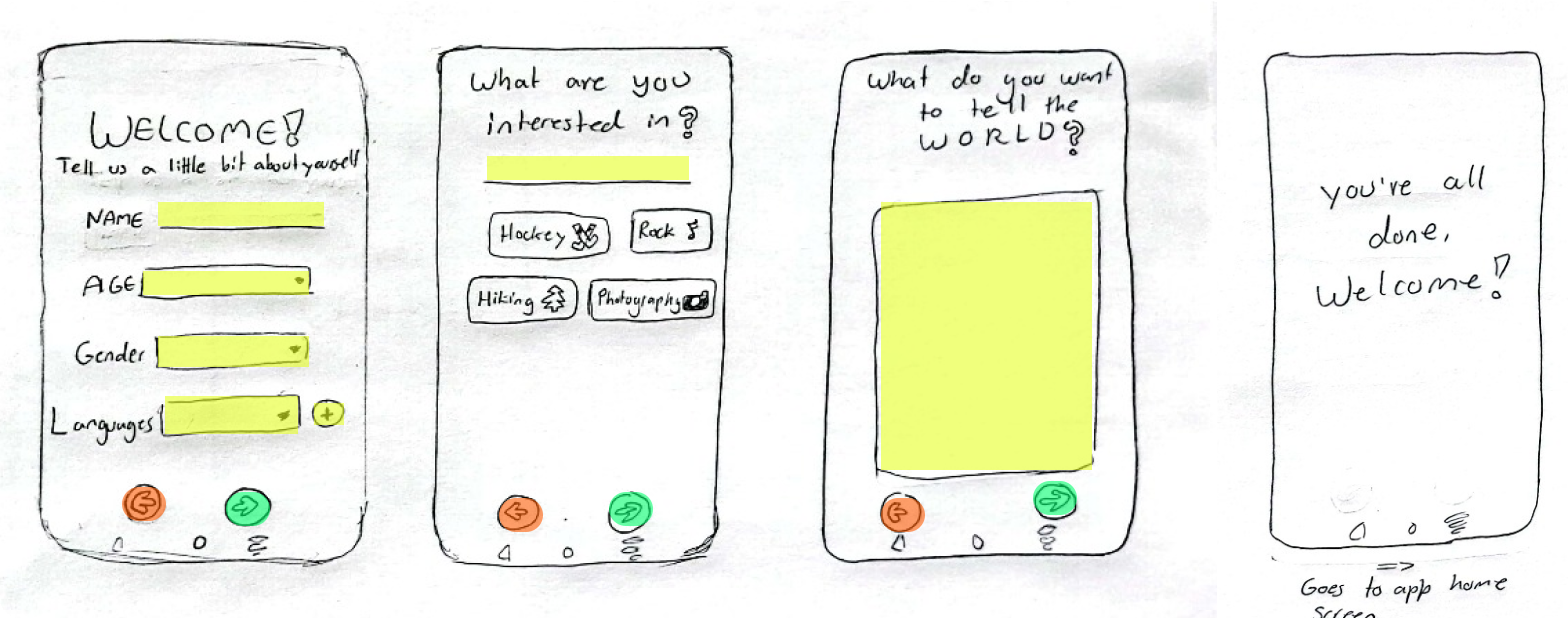 WELCOME!
Tell us a little bit about yourself
NAME
AGE
Gender
Languages
+
What are you
interested in?
Hockey
Rock
Hiking
Photography
What do you want
to tell the
WORLD?
you're all
done,
Welcome!
=>
Goes to app home
screen